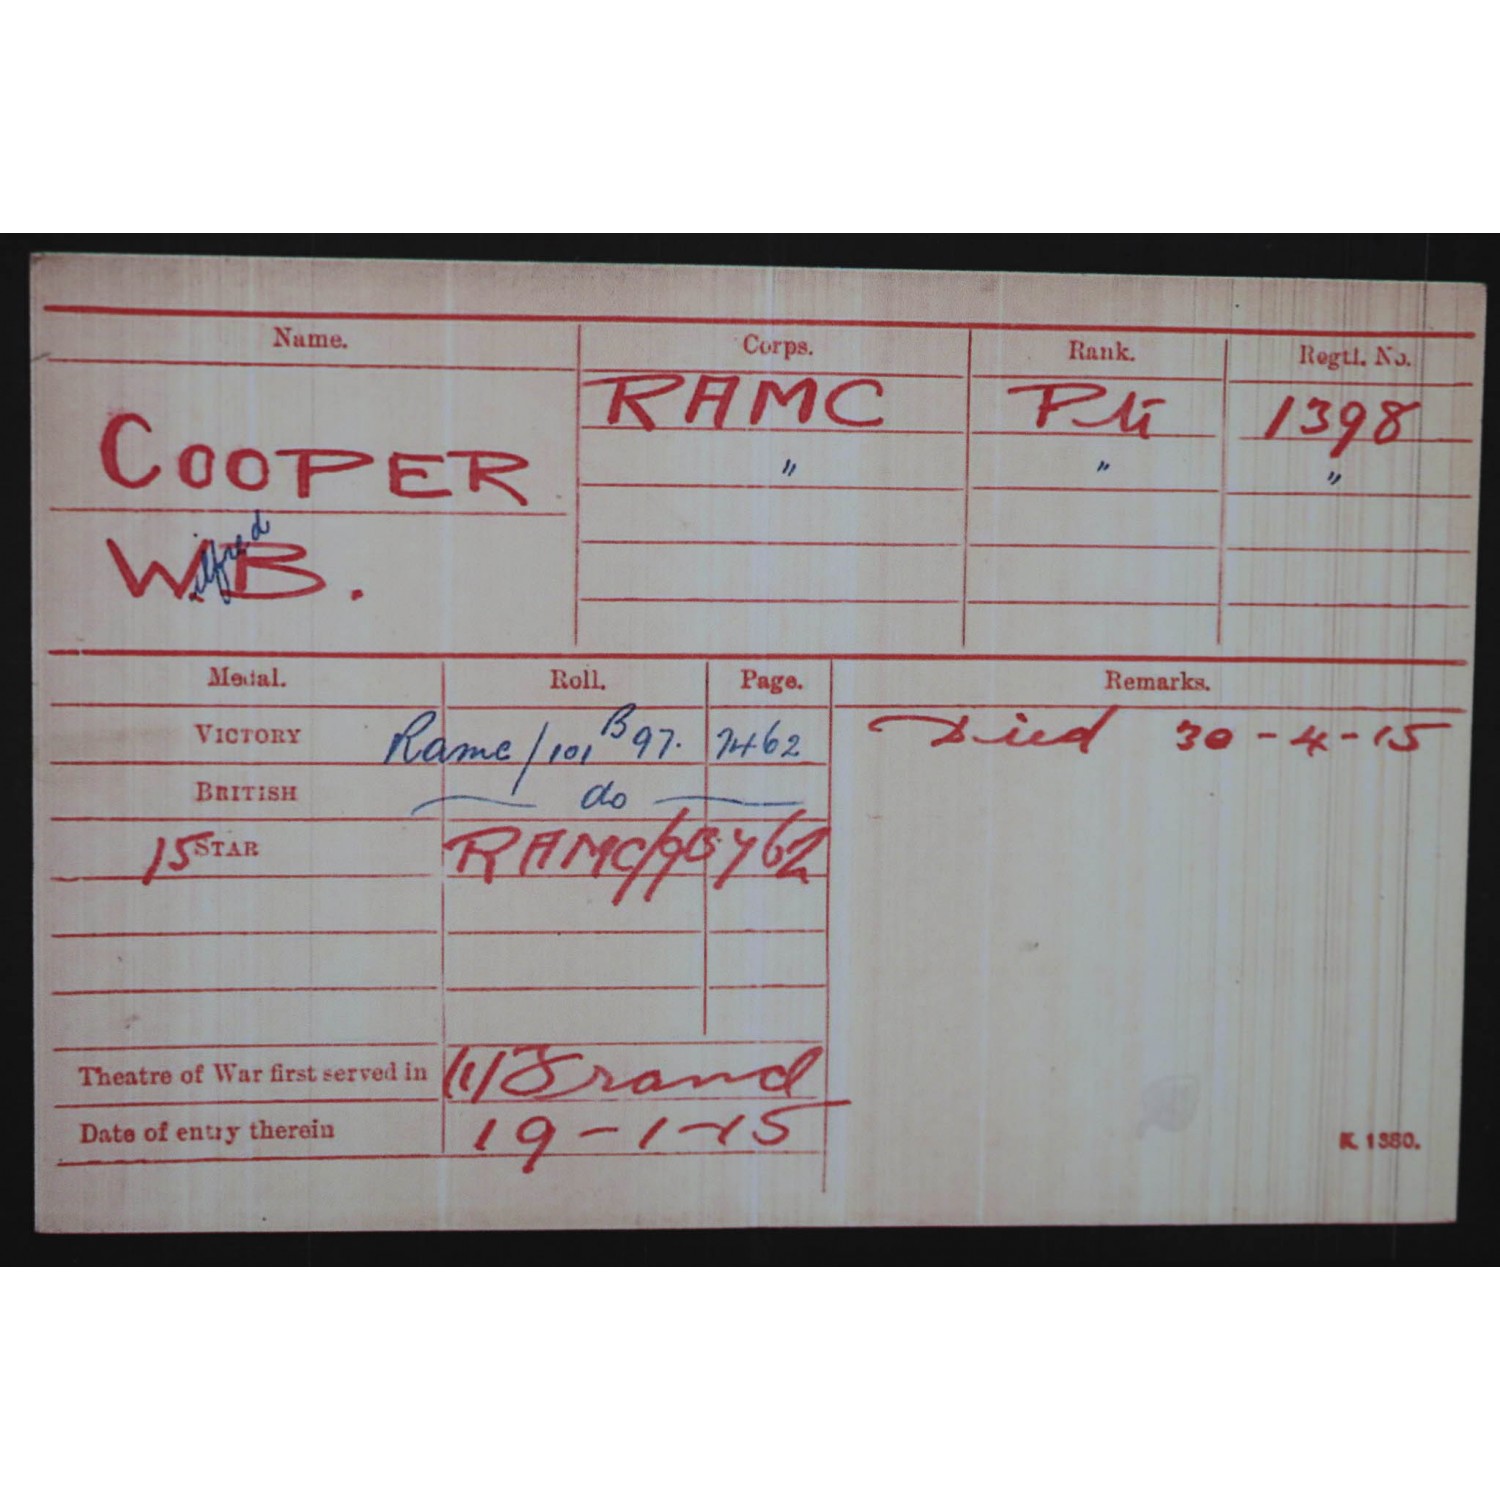 Name. Corps. Rank. Regtl. No.
RAMC Pte 1398
COOPER " " "
Wilfred B.
Medal. Roll. Page. Remarks.
VICTORY Ramc/101 B 97. 7462 Died 30-4-15
BRITISH do
15 STAR RAMC/9B 762
Theatre of War first served in (1) France
Date of entry therein 19-1-15
K. 1380.